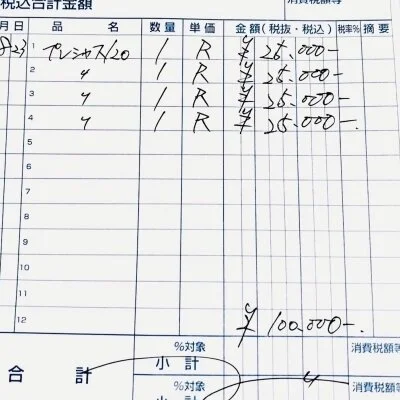 税込合計金額 消費税額等
月 日 品 名 数量 単価 金額(税抜・税込) 税率% 摘要
8 23 1 プレシャス120 1 R ¥25.000-
2 〃 1 R ¥25.000-
3 〃 1 R ¥25.000-
4 〃 1 R ¥25.000-
5
6
7
8
9
10
11
12 ¥100.000-
合 計 %対象 小 計 消費税額等
%対象 小 計 〃 消費税額等